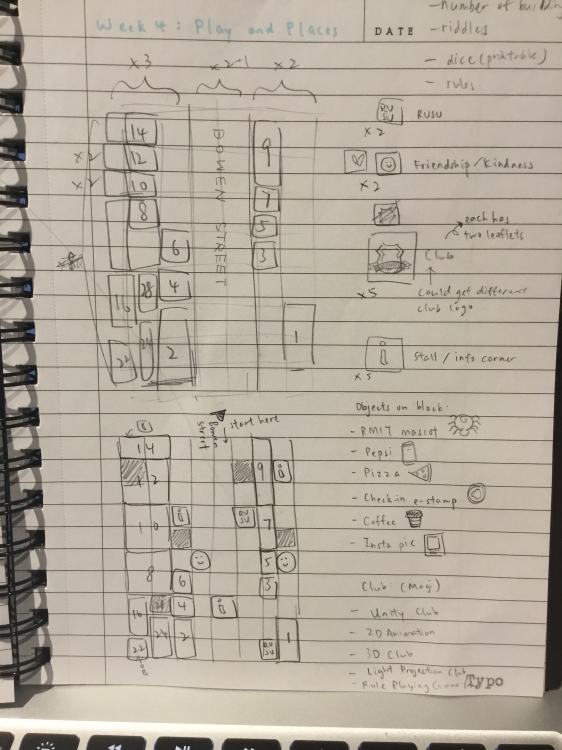 Week 4 : Play and Places
DATE
- number of building
- riddles
- dice (printable)
- rules
x3
x2
x2
BOWEN STREET
14
12
10
8
6
28
4
16
24
2
22
x2
x2
9
7
5
3
1
RU
SU
RUSU
x2
Friendship / Kindness
x2
each has
two leaflets
Club
x5
Could get different
club logo
i
Stall / info corner
x5
Objects on block:
- RMIT mascot
- Pepsi
- Pizza
- Check-in e-stamp
- Coffee
- Insta pic
Club:
- Unity Club
- 2D Animation
- 3D Club
- Light Projection Club
- Role Playing Game
Typo
Bowen
Street
start here
14
12
10
8
6
16
28
4
24
2
22
i
i
9
i
RU
SU
7
5
3
1
RU
SU